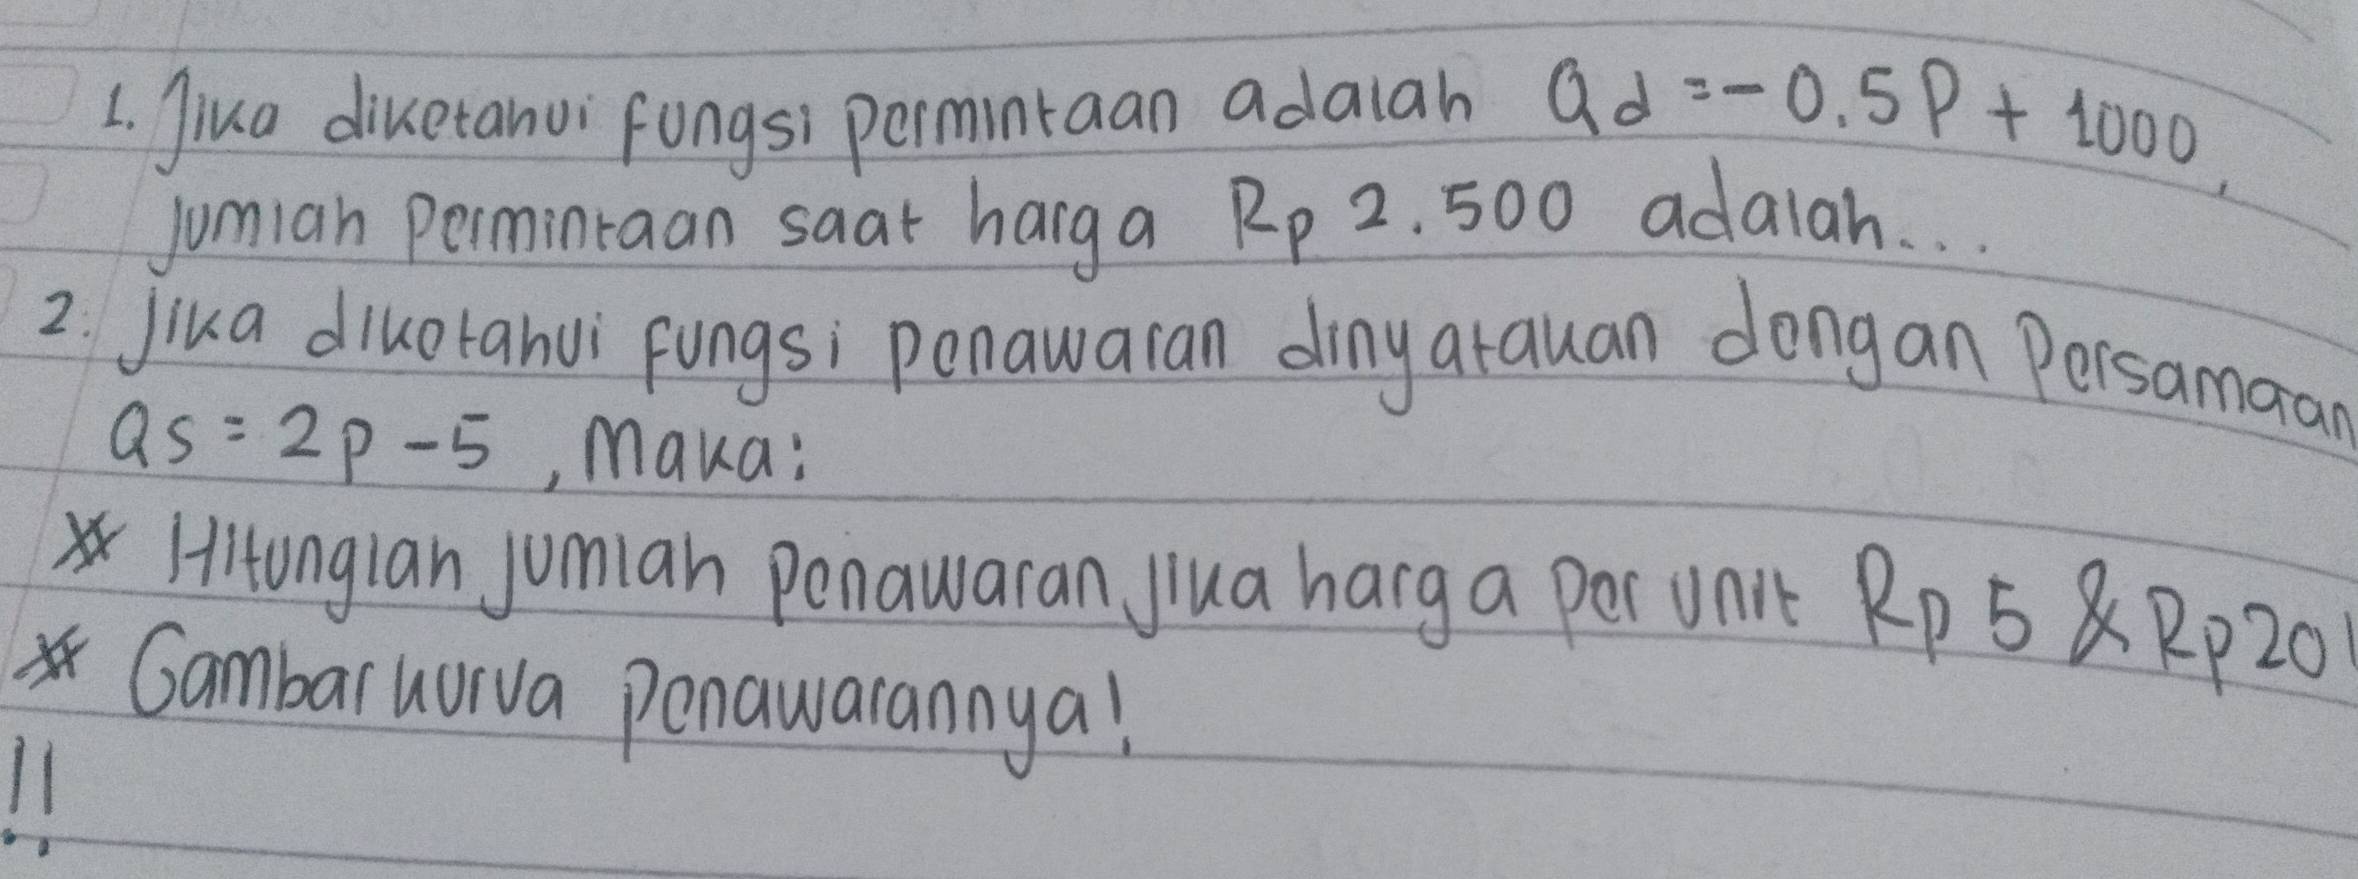 1. Jika diketahui fungsi permintaan adalah Qd = -0.5P + 1000,
jumlah permintaan saat harga Rp 2.500 adalah...
2. Jika diketahui fungsi penawaran dinyatakan dengan persamaan
Qs = 2p - 5, maka:
** Hitunglah jumlah penawaran jika harga per unit Rp 5 & Rp20!
** Gambar kurva penawarannya!
!!